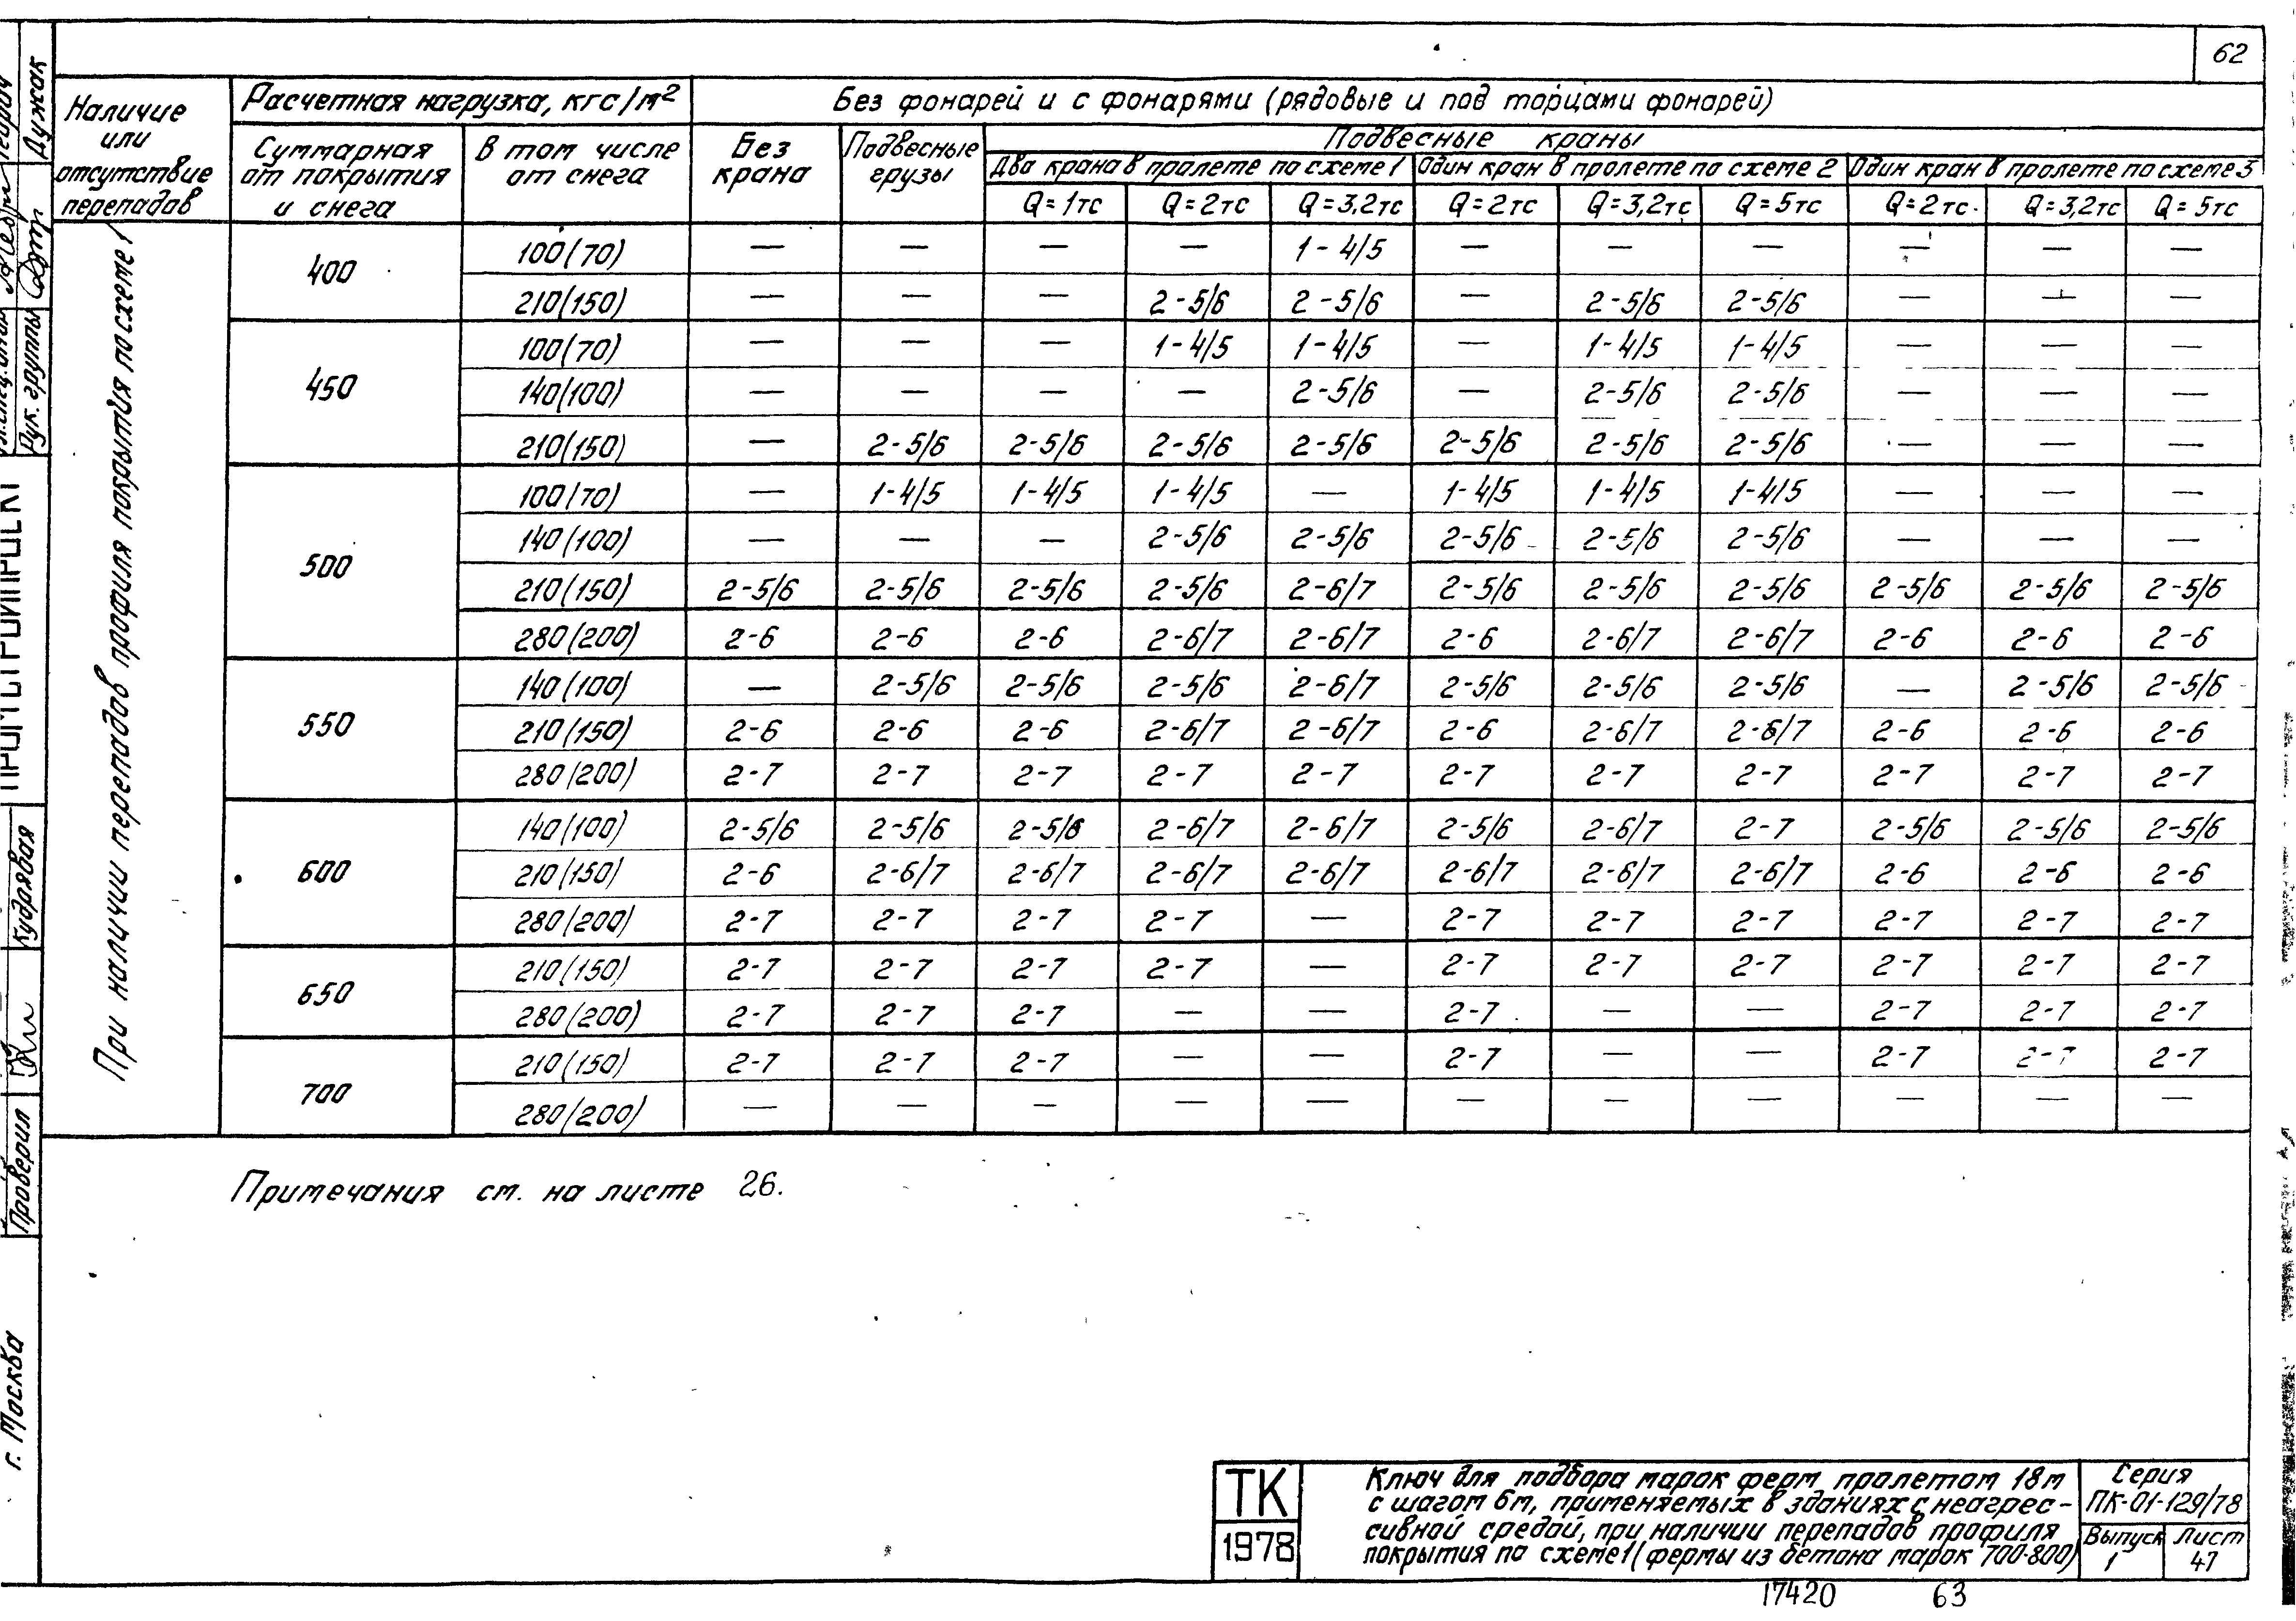 62
Наличие или отсутствие перепадов
Расчетная нагрузка, кгс/м²
Без фонарей и с фонарями (рядовые и под торцами фонарей)
Суммарная от покрытия и снега
В том числе от снега
Без крана
Подвесные грузы
Подвесные краны
Два крана в пролете по схеме 1
Один кран в пролете по схеме 2
Один кран в пролете по схеме 3
Q=1тс Q=2тс Q=3,2тс Q=2тс Q=3,2тс Q=5тс Q=2тс Q=3,2тс Q=5тс
При наличии перепадов профиля покрытия по схеме 1
400
100(70) — — — — 1-4/5 — — — — — —
210(150) — — — 2-5/6 2-5/6 — 2-5/6 2-5/6 — — —
450
100(70) — — — 1-4/5 1-4/5 — 1-4/5 1-4/5 — — —
140(100) — — — — 2-5/6 — 2-5/6 2-5/6 — — —
210(150) — 2-5/6 2-5/6 2-5/6 2-5/6 2-5/6 2-5/6 2-5/6 — — —
500
100(70) — 1-4/5 1-4/5 1-4/5 — 1-4/5 1-4/5 1-4/5 — — —
140(100) — — — 2-5/6 2-5/6 2-5/6 2-5/6 2-5/6 — — —
210(150) 2-5/6 2-5/6 2-5/6 2-5/6 2-6/7 2-5/6 2-5/6 2-5/6 2-5/6 2-5/6 2-5/6
280(200) 2-6 2-6 2-6 2-6/7 2-6/7 2-6 2-6/7 2-6/7 2-6 2-6 2-6
550
140(100) — 2-5/6 2-5/6 2-5/6 2-6/7 2-5/6 2-5/6 2-5/6 — 2-5/6 2-5/6
210(150) 2-6 2-6 2-6 2-6/7 2-6/7 2-6 2-6/7 2-6/7 2-6 2-6 2-6
280(200) 2-7 2-7 2-7 2-7 2-7 2-7 2-7 2-7 2-7 2-7 2-7
600
140(100) 2-5/6 2-5/6 2-5/6 2-6/7 2-6/7 2-5/6 2-6/7 2-7 2-5/6 2-5/6 2-5/6
210(150) 2-6 2-6/7 2-6/7 2-6/7 2-6/7 2-6/7 2-6/7 2-6/7 2-6 2-6 2-6
280(200) 2-7 2-7 2-7 2-7 — 2-7 2-7 2-7 2-7 2-7 2-7
650
210(150) 2-7 2-7 2-7 2-7 — 2-7 2-7 2-7 2-7 2-7 2-7
280(200) 2-7 2-7 2-7 — — 2-7 — — 2-7 2-7 2-7
700
210(150) 2-7 2-7 2-7 — — 2-7 — — 2-7 2-7 2-7
280(200) — — — — — — — — — — —
Примечания см. на листе 26.
Дужак
Рук. группы
ПРОМСТРОЙПРОЕКТ
Кудрявая
Проверил
г. Москва
ТК
1978
Ключ для подбора марок ферм пролетом 18м
с шагом 6м, применяемых в зданиях с неагрес-
сивной средой, при наличии перепадов профиля
покрытия по схеме 1 (фермы из бетона марок 700-800)
Серия
ПК-01-129/78
Выпуск 1
Лист 47
17420 63